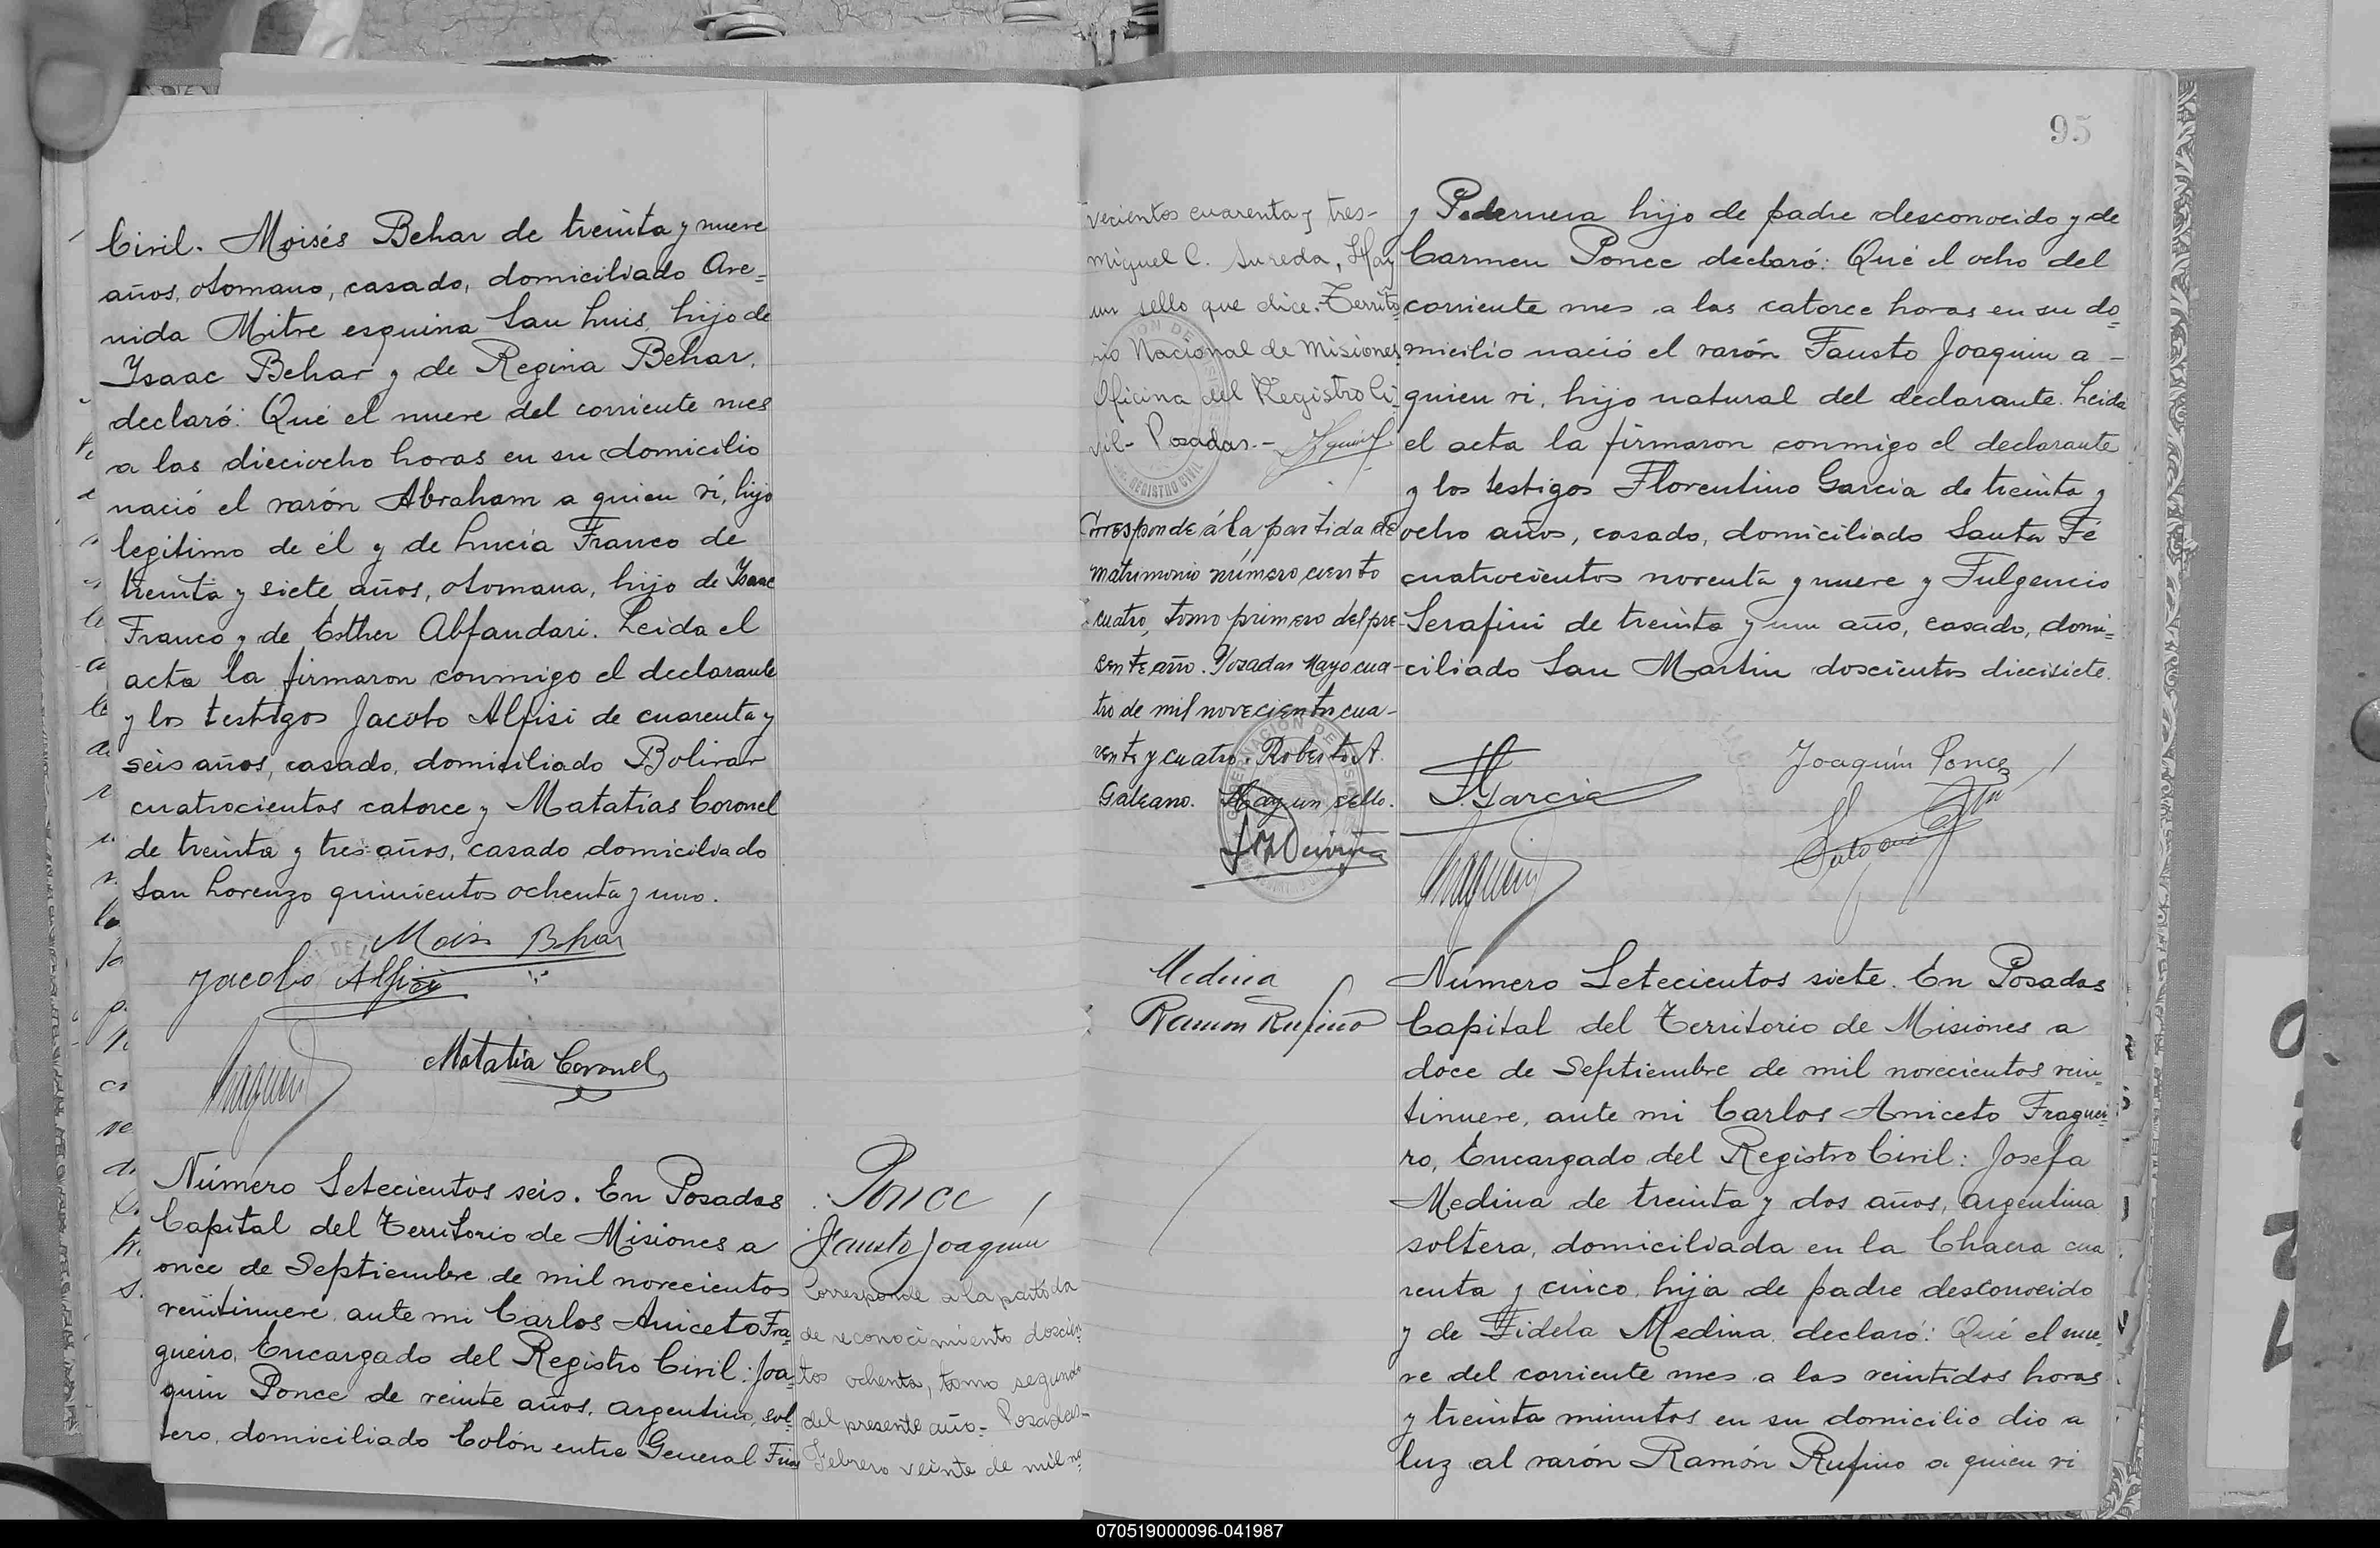 Civil. Moisés Behar de treinta y nueve
años, otomano, casado, domiciliado Ave=
nida Mitre esquina San Luis, hijo de
Isaac Behar y de Regina Behar,
declaró: Qué el nueve del corriente mes
a las dieciocho horas en su domicilio
nació el varón Abraham a quien vi, hijo
legítimo de él y de Lucía Franco de
treinta y siete años, otomana, hijo de Isaac
Franco y de Esther Abfandari. Leida el
acta la firmaron conmigo el declarante
y los testigos Jacobo Alfisi de cuarenta y
seis años, casado, domiciliado Bolivar
cuatrocientos catorce y Matatias Coronel
de treinta y tres años, casado domiciliado
San Lorenzo quinientos ochenta y uno.
Jacobo Alfisi
Matatia Coronel
Número Setecientos seis. En Posadas
Capital del Territorio de Misiones a
once de Septiembre de mil novecientos
veintinueve ante mi Carlos Aniceto Fra=
gueiro, Encargado del Registro Civil: Joa=
quin Ponce de veinte años, argentino, sol=
tero, domiciliado Colón entre General Frias
Ponce
Fausto Joaquin
Corresponde a la partida
de reconocimiento doscien
tos ochenta, tomo segundo
del presente año.- Posadas-
Febrero veinte de mil no=
vecientos cuarenta y tres-
Miguel C. Sureda, Hay
un sello que dice: Territo
rio Nacional de Misiones
Oficina del Registro Ci=
vil- Posadas.-
REGISTRO CIVIL
Corresponde á la partida de
matrimonio número ciento
cuatro, tomo primero del pre-
sente año. Posadas Mayo cua-
tro de mil novecientos cua-
renta y cuatro. Roberto A.
Galeano. Hay un sello.
95
y Pedernera hijo de padre desconocido y de
Carmen Ponce declaró: Qué el ocho del
corriente mes a las catorce horas en su do=
micilio nació el varón Fausto Joaquin a -
quien vi, hijo natural del declarante. Leida
el acta la firmaron conmigo el declarante
y los testigos Florentino Garcia de treinta y
ocho años, casado, domiciliado Santa Fé
cuatrocientos noventa y nueve y Fulgencio
Serafini de treinta y un año, casado, domi=
ciliado San Martin doscientos diecisiete.
Joaquín Ponce
F. Garcia
Medina
Ramon Rufino
Número Setecientos siete. En Posadas
Capital del Territorio de Misiones a
doce de Septiembre de mil novecientos vein=
tinueve, ante mi Carlos Aniceto Fraguei=
ro, Encargado del Registro Civil: Josefa
Medina de treinta y dos años, argentina
soltera, domiciliada en la Chacra cua
renta y cinco, hija de padre desconocido
y de Fidela Medina, declaró: Qué el nue=
ve del corriente mes a las veintidos horas
y treinta minutos en su domicilio dio a
luz al varón Ramón Rufino a quien vi
070519000096-041987